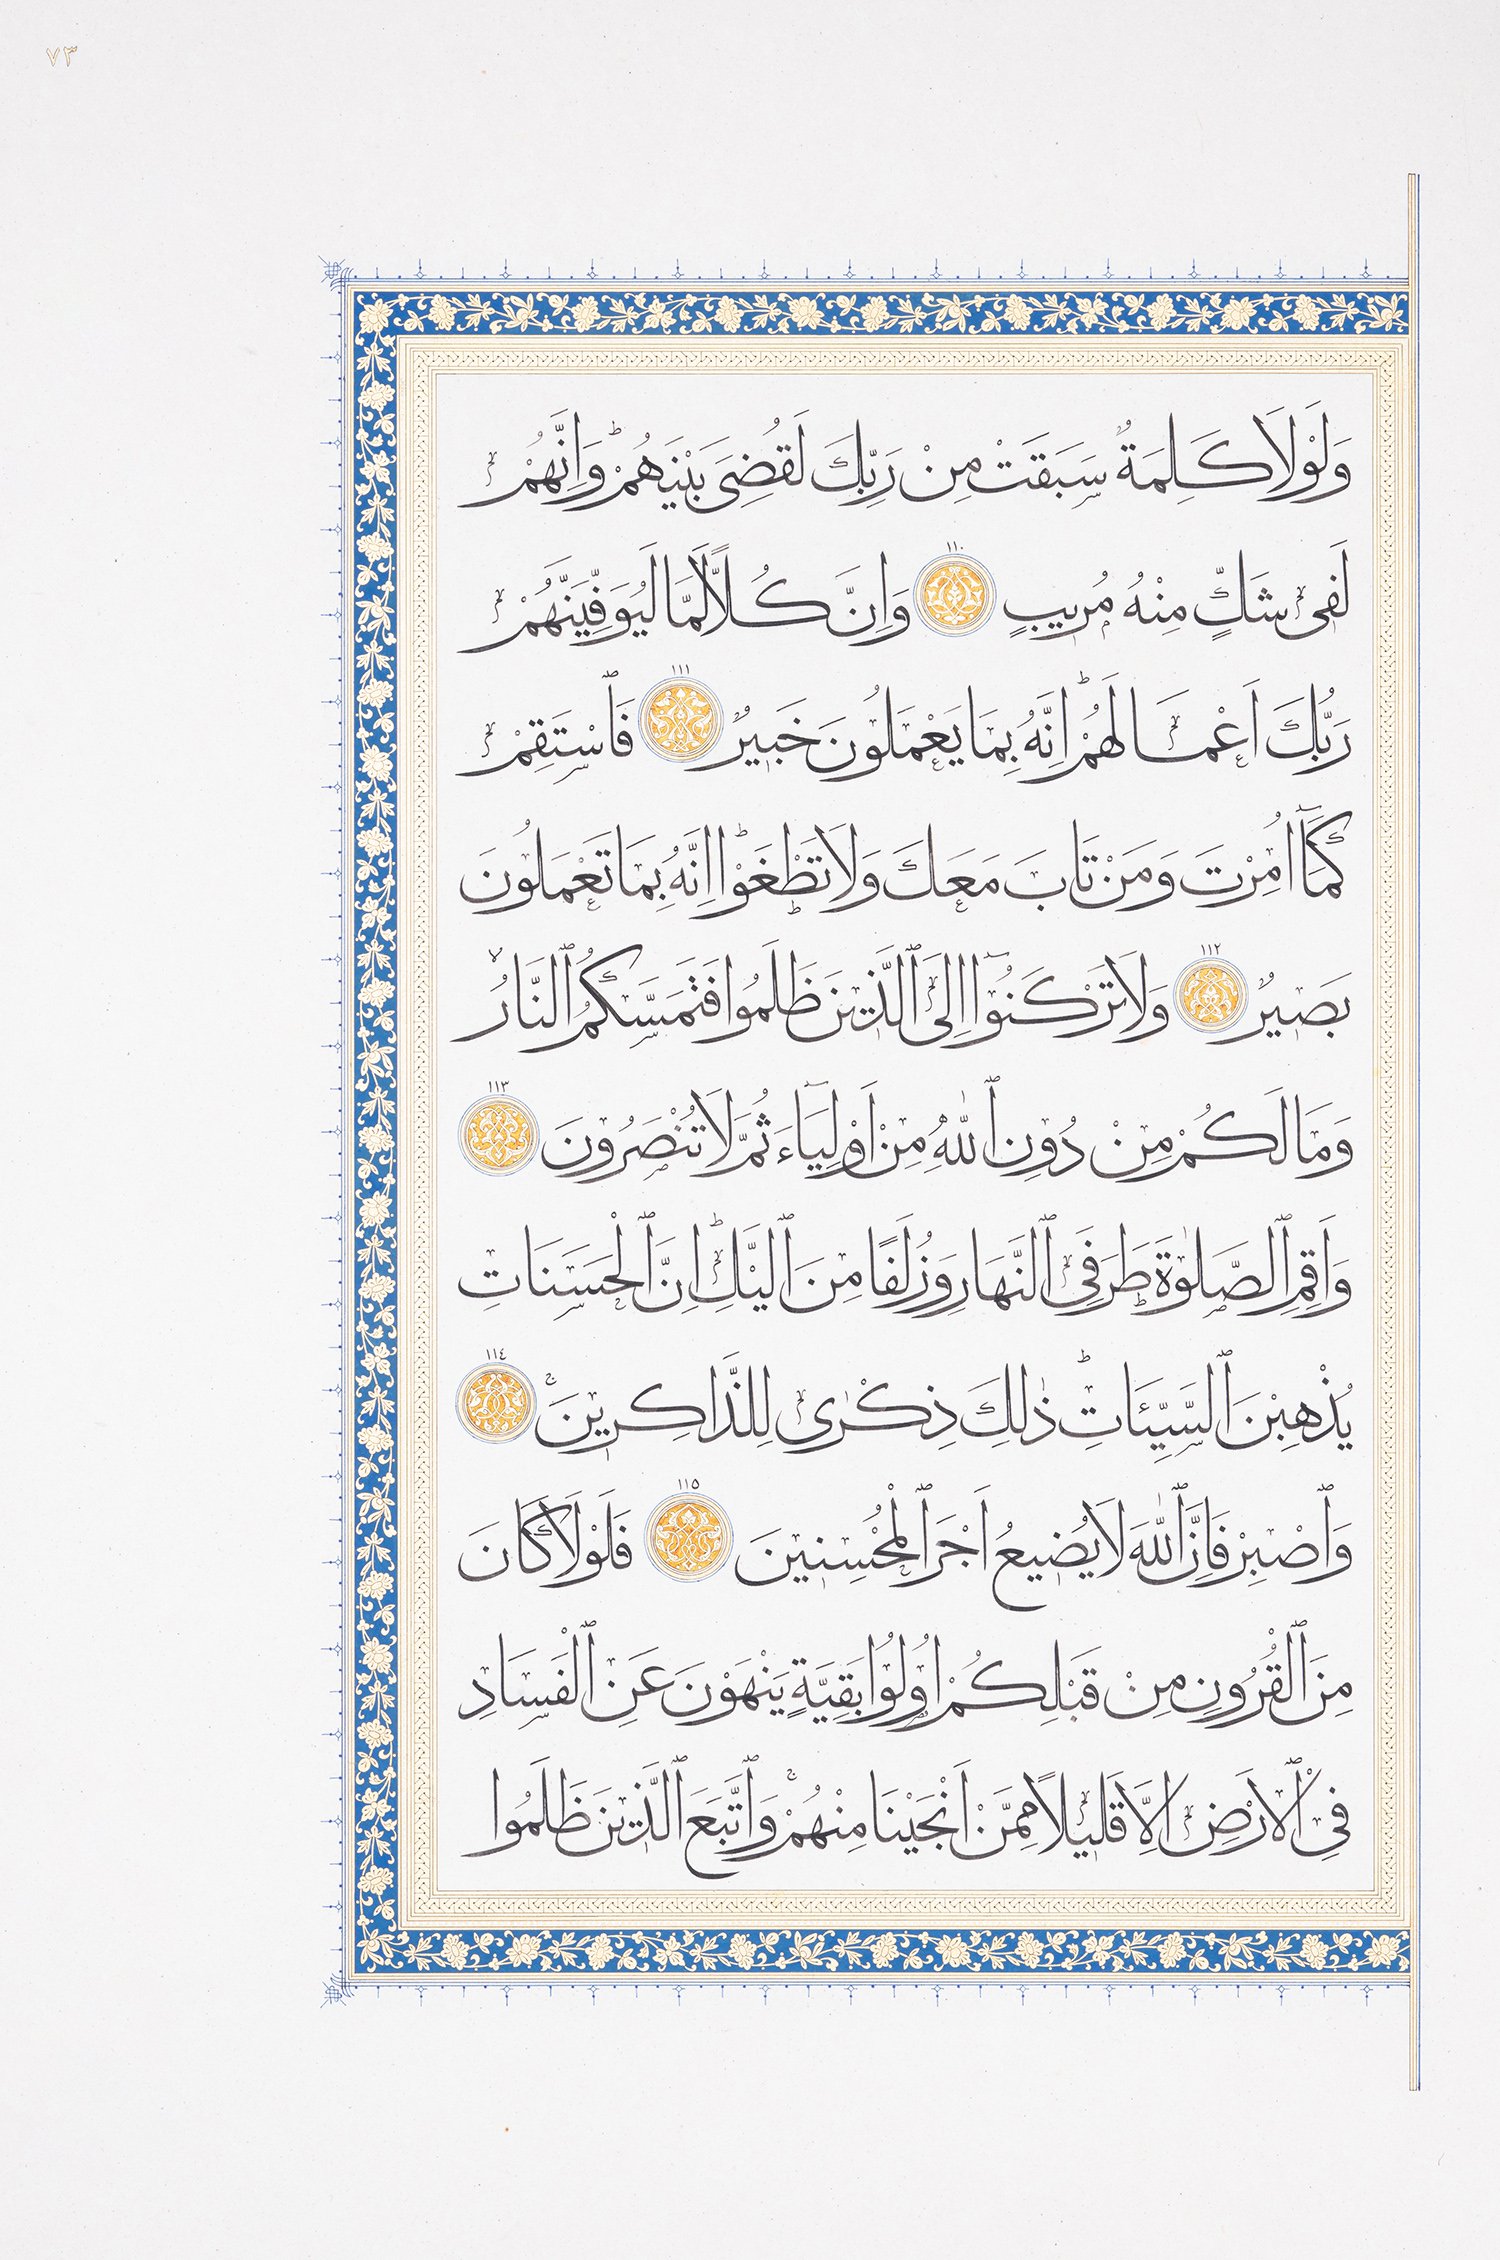 ٧٣
وَلَوْلَا كَلِمَةٌ سَبَقَتْ مِنْ رَبِّكَ لَقُضِيَ بَيْنَهُمْ وَاِنَّهُمْ
١١٠
لَفِى شَكٍّ مِنْهُ مُرِيبٍ وَاِنَّ كُلًّا لَمَّا لَيُوَفِّيَنَّهُمْ
١١١
رَبُّكَ اَعْمَالَهُمْ اِنَّهُ بِمَا يَعْمَلُونَ خَبِيرٌ فَاسْتَقِمْ
كَمَٓا اُمِرْتَ وَمَنْ تَابَ مَعَكَ وَلَا تَطْغَوْا اِنَّهُ بِمَا تَعْمَلُونَ
١١٢
بَصِيرٌ وَلَا تَرْكَنُٓوا اِلَى الَّذِينَ ظَلَمُوا فَتَمَسَّكُمُ النَّارُ
١١٣
وَمَا لَكُمْ مِنْ دُونِ اللّٰهِ مِنْ اَوْلِيَٓاءَ ثُمَّ لَا تُنْصَرُونَ
وَاَقِمِ الصَّلٰوةَ طَرَفَيِ النَّهَارِ وَزُلَفًا مِنَ الَّيْلِ اِنَّ الْحَسَنَاتِ
١١٤
يُذْهِبْنَ السَّيِّـَٔاتِ ذٰلِكَ ذِكْرٰى لِلذَّاكِرِينَ
١١٥
وَاصْبِرْ فَاِنَّ اللّٰهَ لَا يُضِيعُ اَجْرَ الْمُحْسِنِينَ فَلَوْلَا كَانَ
مِنَ الْقُرُونِ مِنْ قَبْلِكُمْ اُولُوا بَقِيَّةٍ يَنْهَوْنَ عَنِ الْفَسَادِ
فِي الْاَرْضِ اِلَّا قَلِيلًا مِمَّنْ اَنْجَيْنَا مِنْهُمْ وَاتَّبَعَ الَّذِينَ ظَلَمُوا